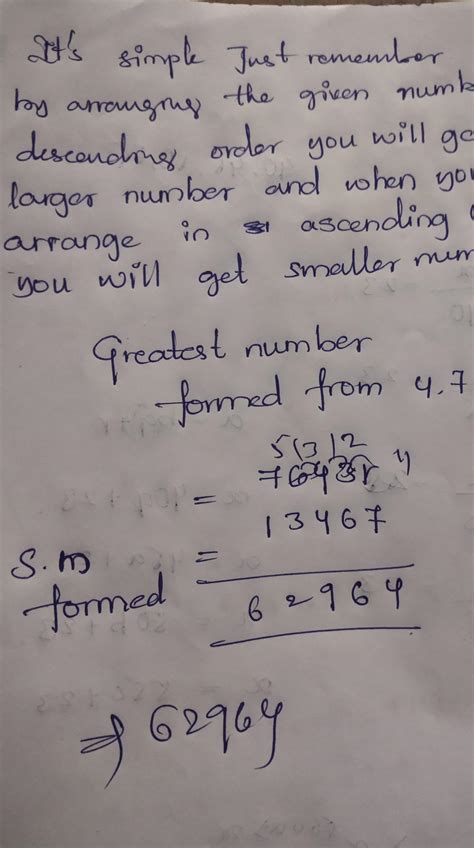 It's simple Just remember
by arranging the given numb
descending order you will ge
larger number and when you
arrange in ascending
you will get smaller num
Greatest number
formed from 4.7
= 76431
13467
S.m =
formed 62964
⇒ 62964